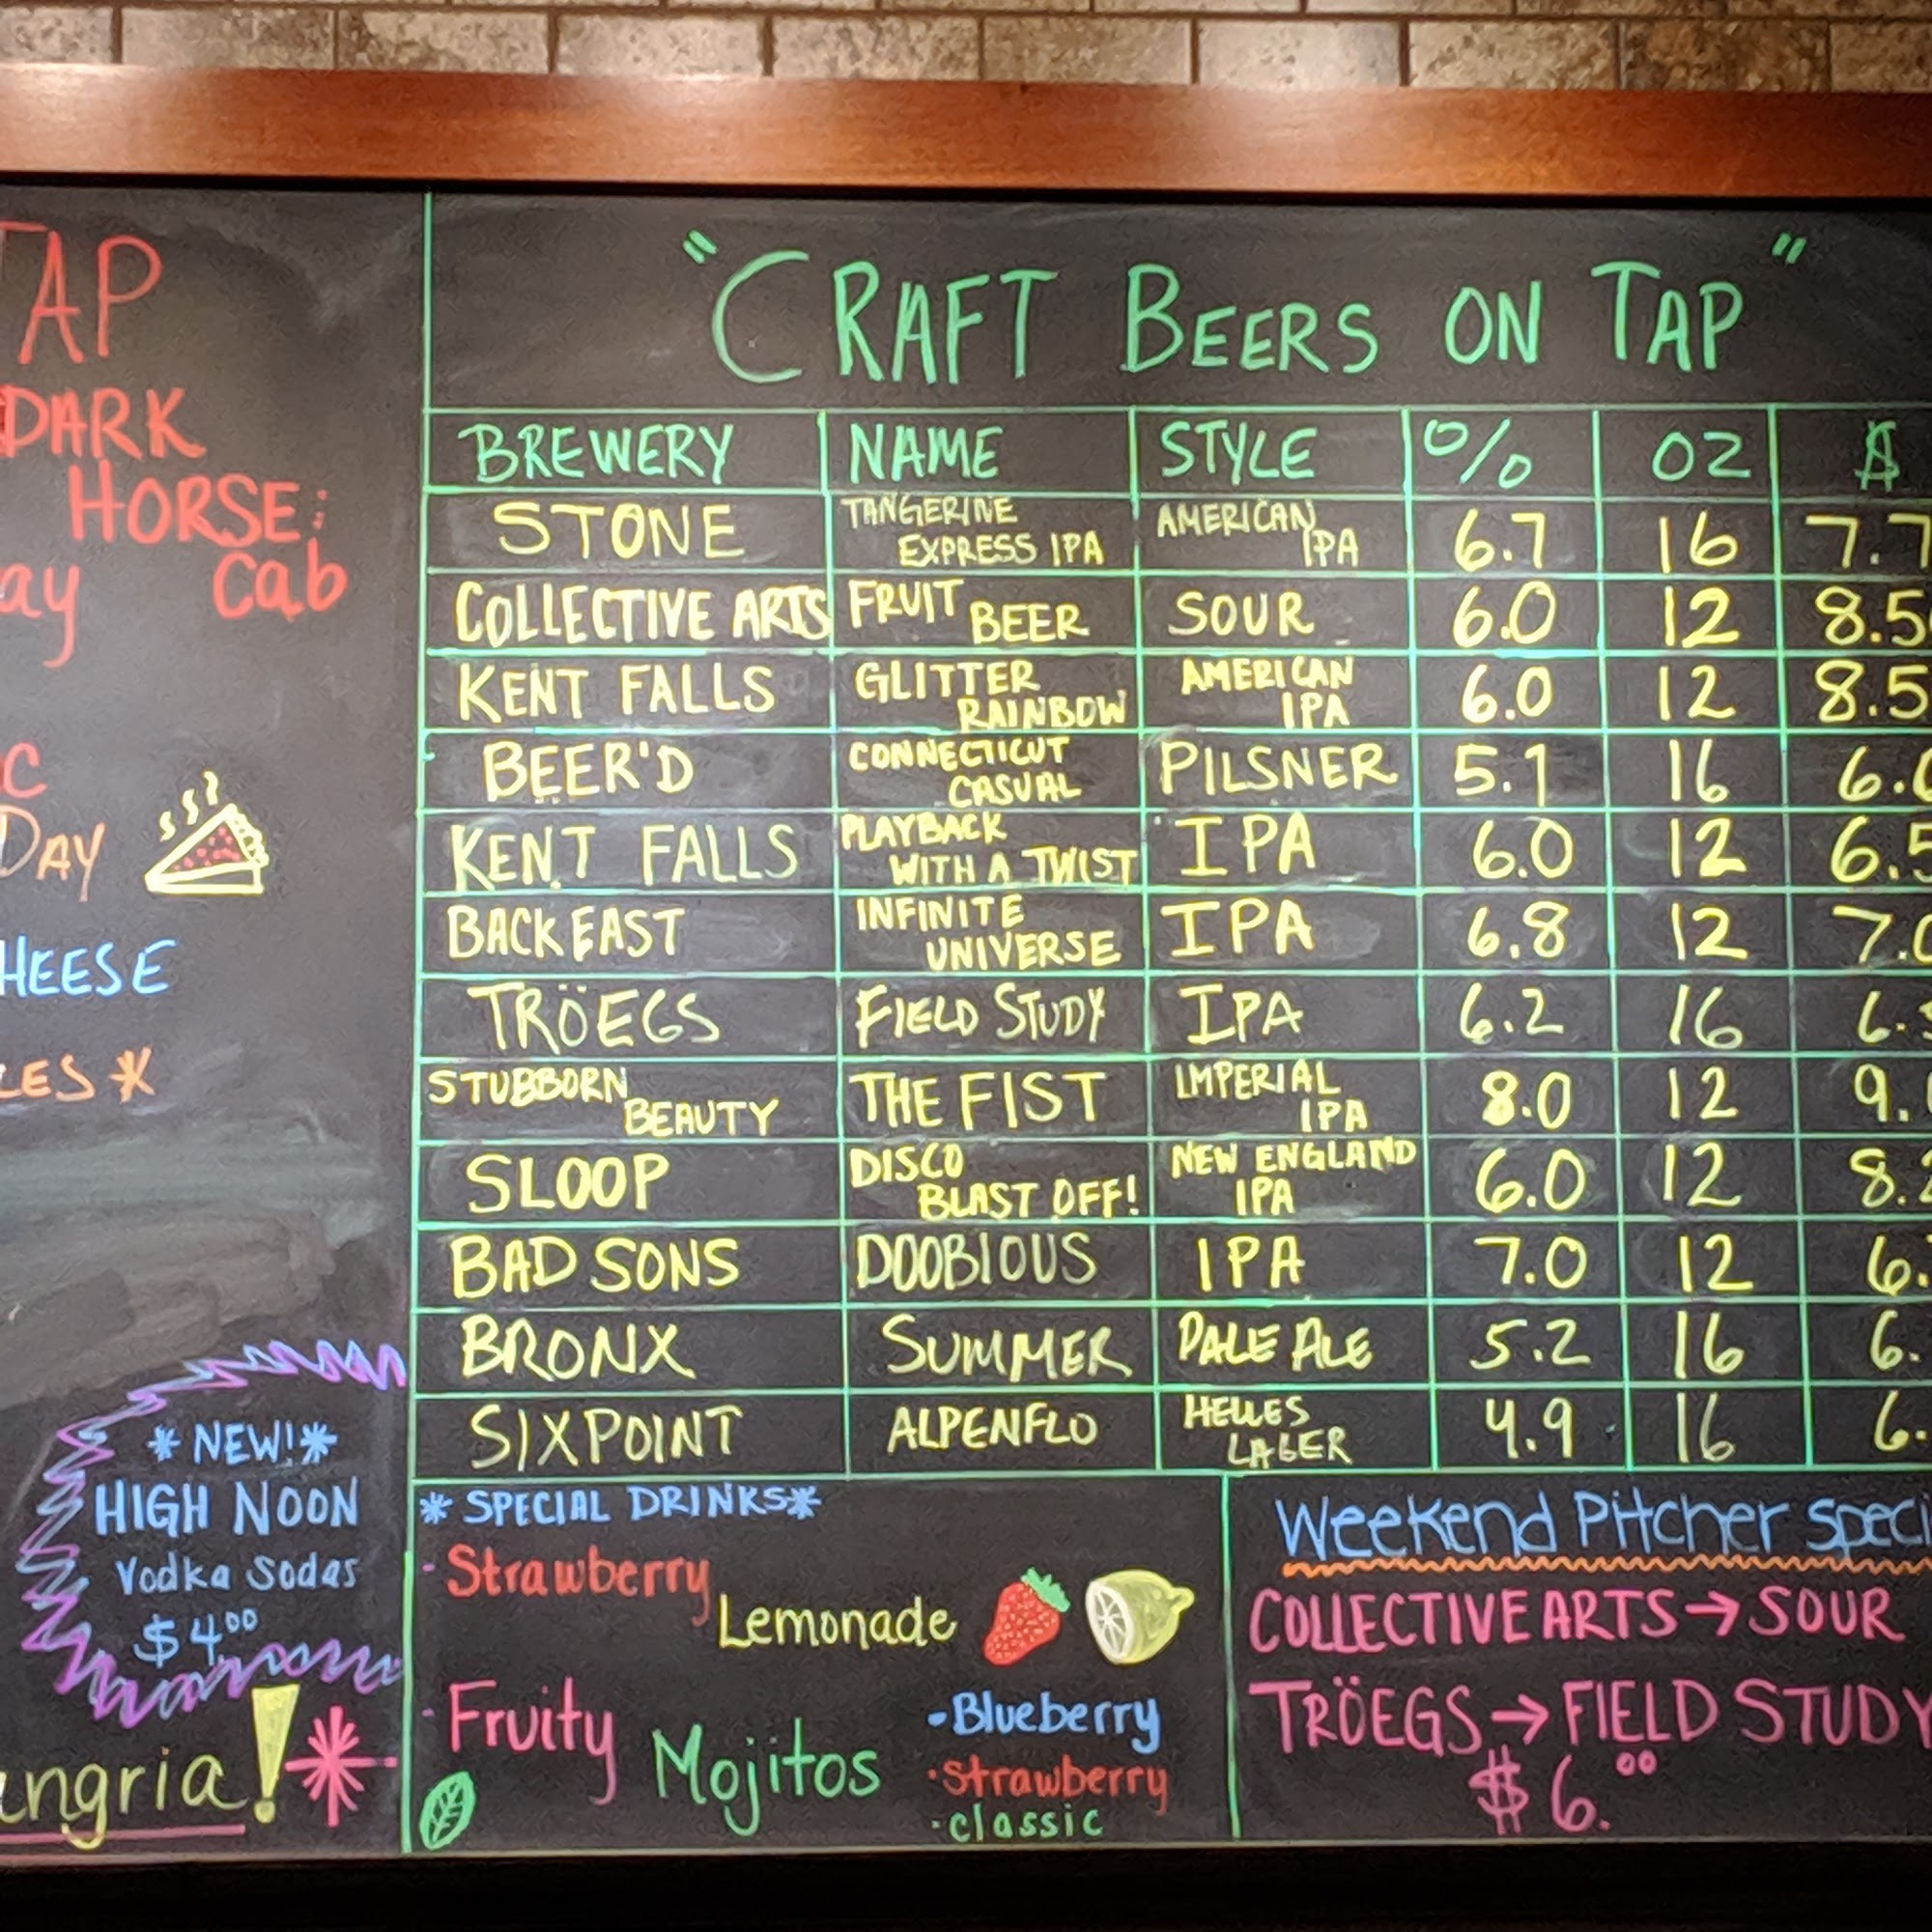 TAP
DARK
HORSE:
ay Cab
C
DAY
HEESE
LES *
* NEW! *
HIGH NOON
Vodka Sodas
$4.00
angria! *
"CRAFT BEERS ON TAP"
BREWERY NAME STYLE % OZ $
STONE TANGERINE EXPRESS IPA AMERICAN IPA 6.7 16 7.7
COLLECTIVE ARTS FRUIT BEER SOUR 6.0 12 8.5
KENT FALLS GLITTER RAINBOW AMERICAN IPA 6.0 12 8.5
BEER'D CONNECTICUT CASUAL PILSNER 5.1 16 6.
KENT FALLS PLAYBACK WITH A TWIST IPA 6.0 12 6.5
BACK EAST INFINITE UNIVERSE IPA 6.8 12 7.0
TRÖEGS FIELD STUDY IPA 6.2 16 6.
STUBBORN BEAUTY THE FIST IMPERIAL IPA 8.0 12 9.
SLOOP DISCO BLAST OFF! NEW ENGLAND IPA 6.0 12 8.
BAD SONS DOOBIOUS IPA 7.0 12 6.
BRONX SUMMER PALE ALE 5.2 16 6.
SIXPOINT ALPENFLO HELLES LAGER 4.9 16 6.
* SPECIAL DRINKS *
- Strawberry
Lemonade
- Fruity Mojitos
• Blueberry
• Strawberry
• classic
Weekend Pitcher Speci
COLLECTIVE ARTS → SOUR
TRÖEGS → FIELD STUDY
$6.00